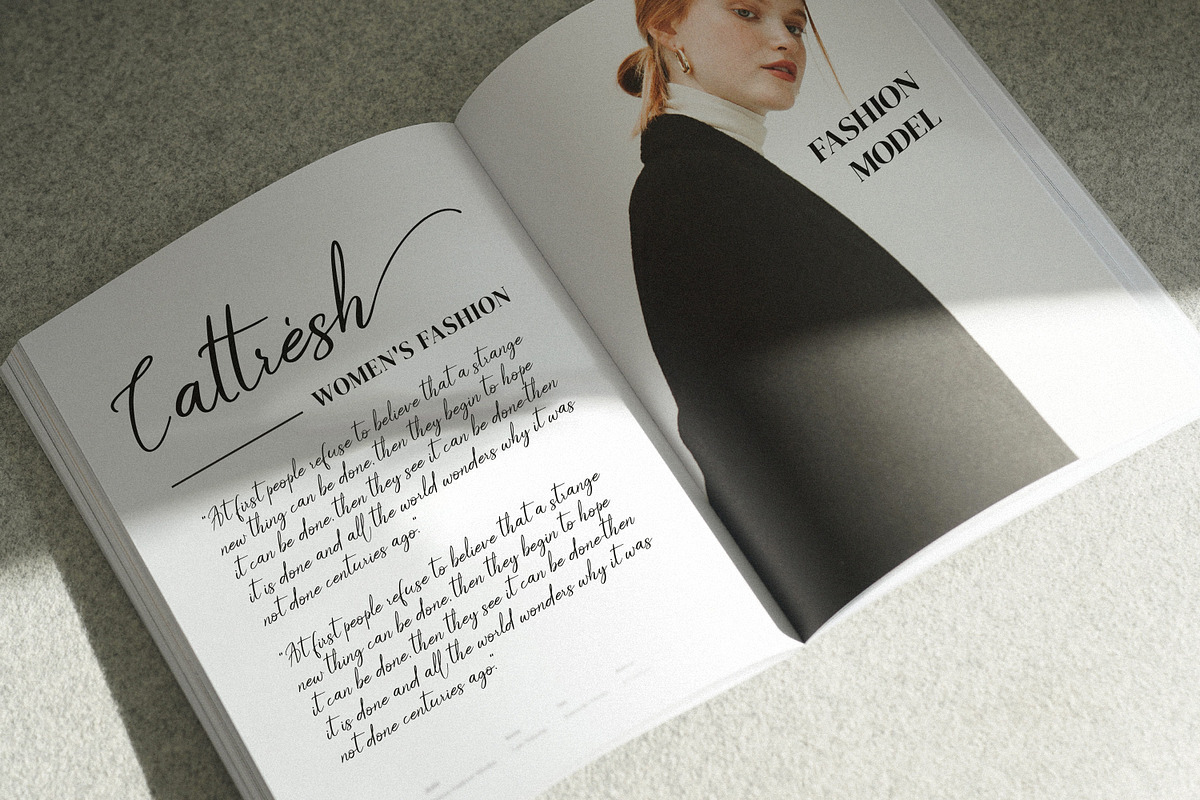 Cattrésh
WOMEN'S FASHION
"At first people refuse to believe that a strange
new thing can be done. then they begin to hope
it can be done. then they see it can be done then
it is done and all the world wonders why it was
not done centuries ago."
"At first people refuse to believe that a strange
new thing can be done. then they begin to hope
it can be done. then they see it can be done then
it is done and all the world wonders why it was
not done centuries ago."
FASHION
MODEL